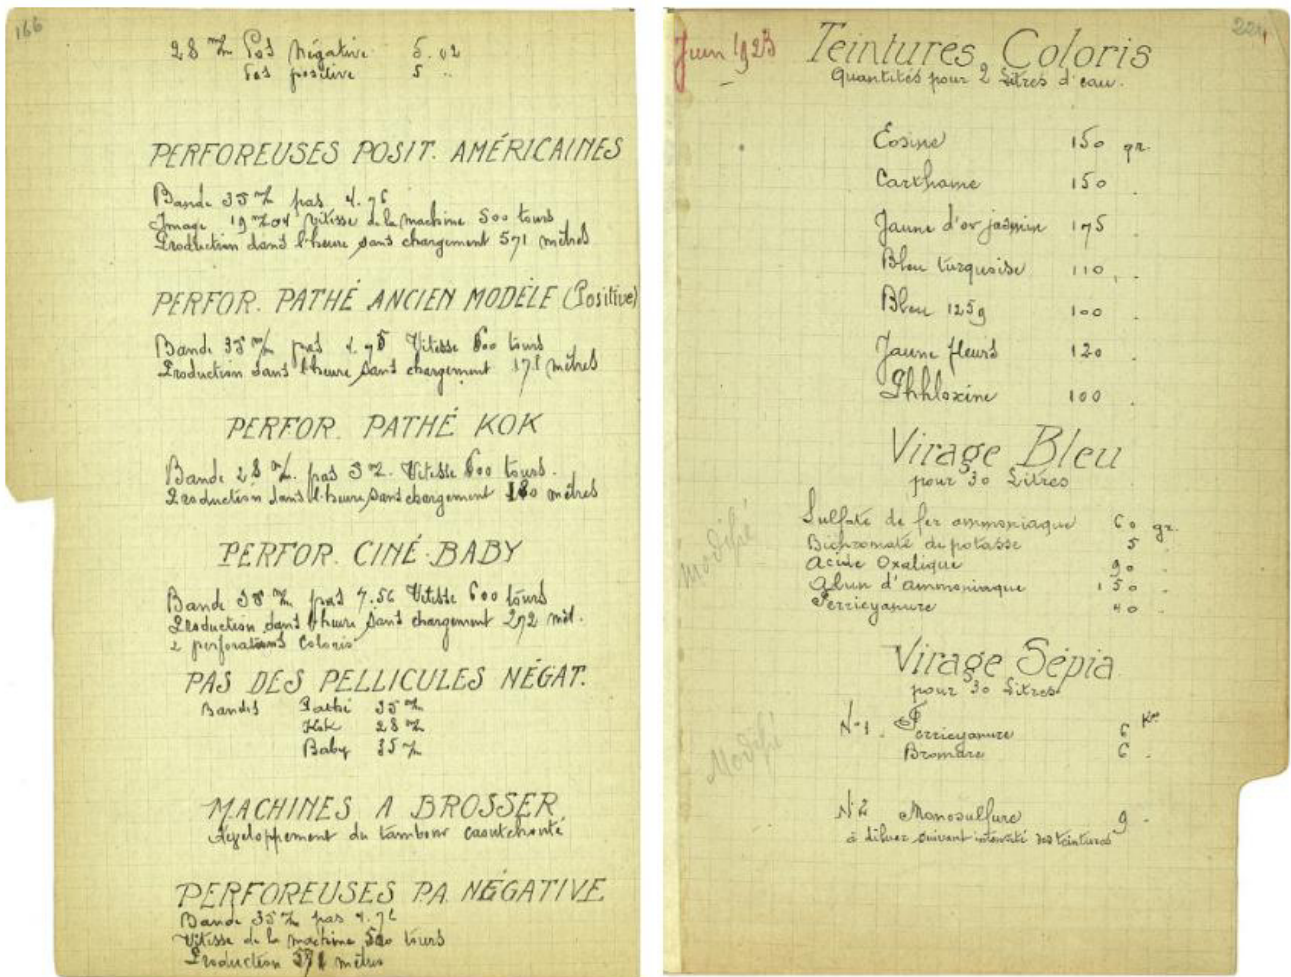 166
28 m/m Pas Négative 5.02
Pas positive 5 ..
PERFOREUSES POSIT. AMÉRICAINES
Bande 35 m/m pas 4.76
Image 19 m/m 04 Vitesse de la machine 500 tours
Production dans l'heure sans chargement 571 mètres
PERFOR. PATHÉ ANCIEN MODÈLE (Positive)
Bande 35 m/m pas 4.75 Vitesse 600 tours
Production dans l'heure sans chargement 171 mètres
PERFOR. PATHÉ KOK
Bande 28 m/m. pas 5 m/m. Vitesse 600 tours.
Production dans l'heure sans chargement 180 mètres
PERFOR. CINÉ-BABY
Bande 35 m/m pas 7.56 Vitesse 600 tours
Production dans l'heure sans chargement 272 mèt.
2 perforations Coloris
PAS DES PELLICULES NÉGAT.
Bandes Pathé 35 m/m
Kok 28 m/m
Baby 35 m/m
MACHINES A BROSSER
Développement du tambour caoutchouté
PERFOREUSES P.A. NÉGATIVE
Bande 35 m/m pas 4.71
Vitesse de la machine 500 tours
Production 571 mètres
Juin 1923
224
Teintures Coloris
Quantités pour 2 Litres d'eau.
Eosine 150 gr.
Carthame 150 .
Jaune d'or jasmin 175 .
Bleu turquoise 110 .
Bleu 125g 100 .
Jaune fleurs 120 .
Phhloxine 100 .
Virage Bleu
pour 30 Litres
Modifié
Sulfate de fer ammoniaque 60 gr.
Bichromate de potasse 5 .
Acide Oxalique 90 .
Alun d'ammoniaque 150 .
Ferricyanure 40 .
Virage Sépia
pour 30 Litres
Modifié
N°1. Ferricyanure 6 Kos
Bromure 6 .
N°2 Monosulfure 9 .
à diluer suivant intensité des teintures